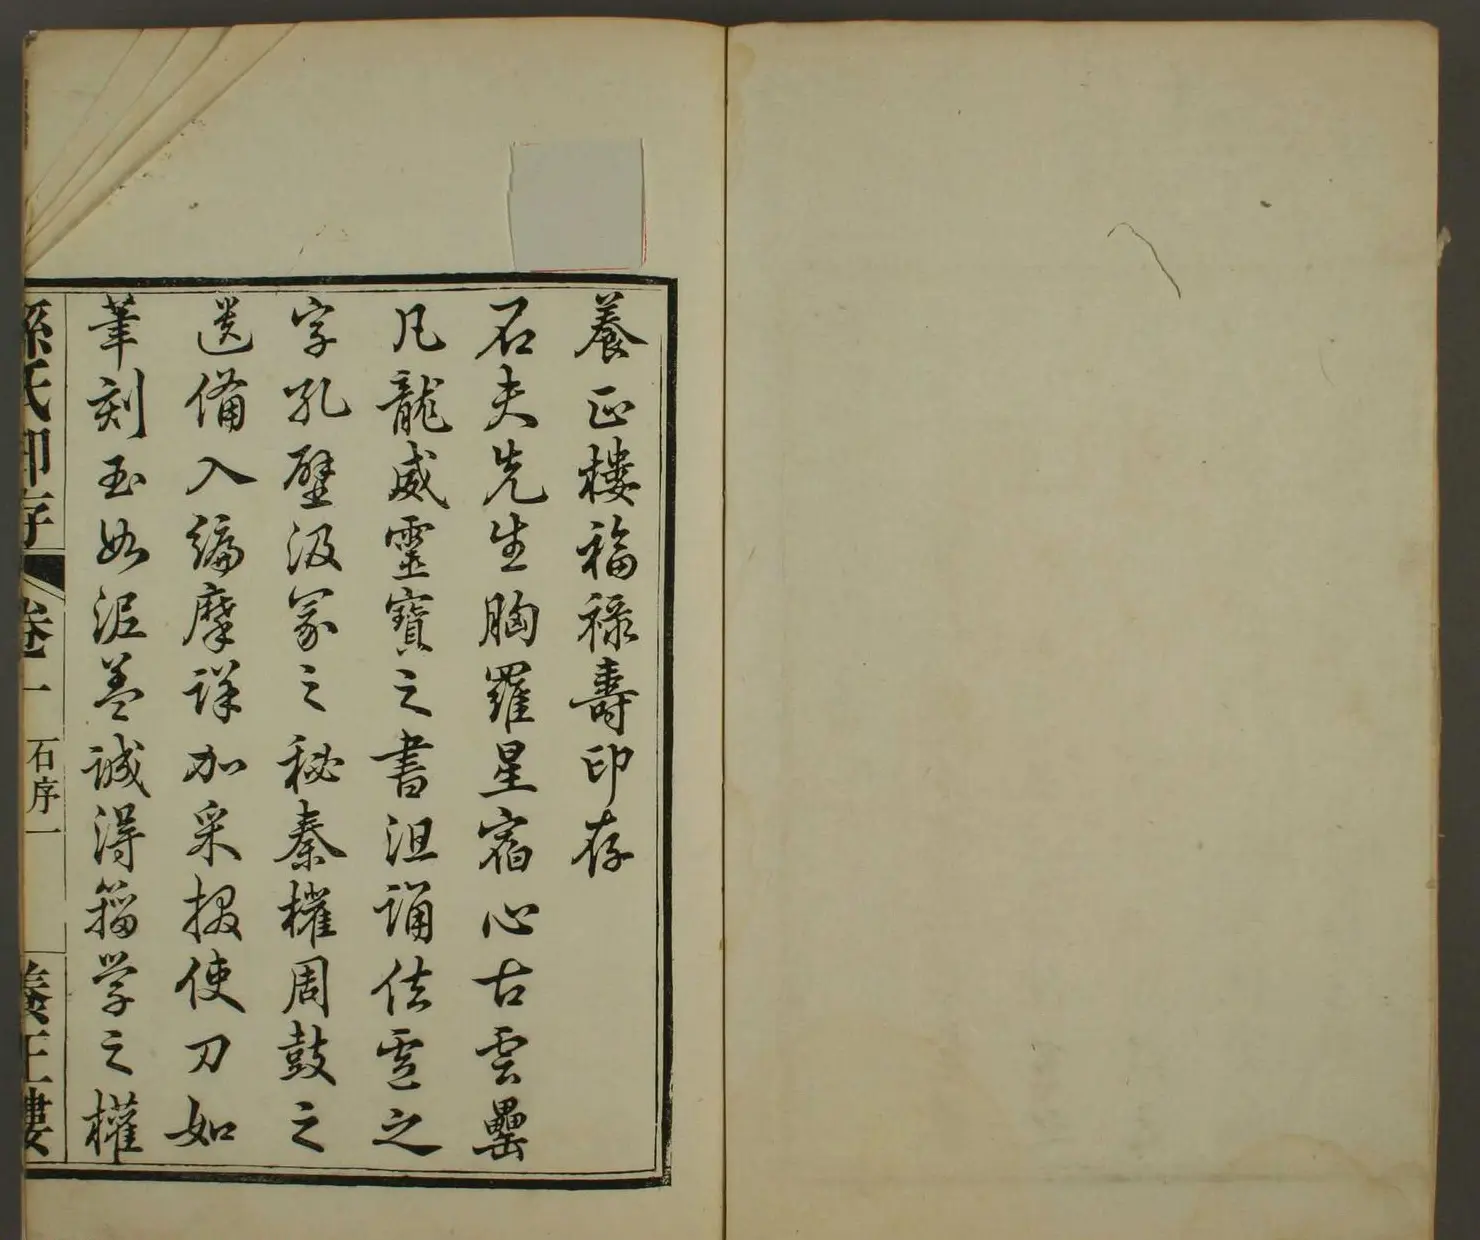 養正樓福祿壽印存
石夫先生胸羅星宿心古雲罍
凡龍威靈寶之書沮誦佐雹之
字孔壁汲冢之秘秦權周鼓之
遺備入編摩詳加采掇使刀如
筆刻玉如泥蓋誠得籀學之權
孫氏印存 卷一 石序一 養正樓